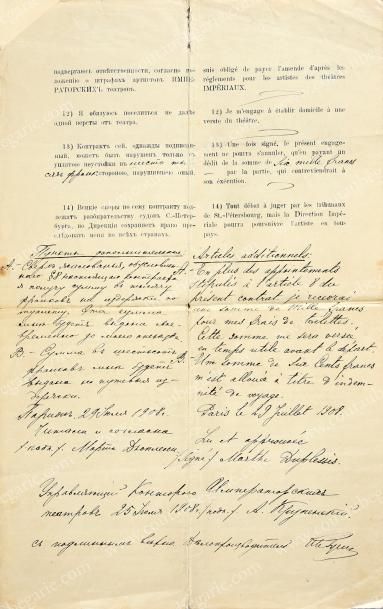 подвергаюсь отвѣтственности, согласно по-
ложенію о штрафахъ артистовъ ИМПЕ-
РАТОРСКИХЪ театровъ.
12) Я обязуюсь поселиться не далѣе
одной версты отъ театра.
13) Контрактъ сей, однажды подписан-
ный, можетъ быть нарушенъ только съ
уплатою неустойки въ
стороною, нарушившею оный.
14) Всякіе споры по сему контракту под-
лежатъ разбирательству судовъ С.-Петер-
бурга, но Дирекція сохраняетъ право пре-
слѣдовать меня во всѣхъ странахъ.
Пункты дополнительные
A.-
получу сумму въ тысячу
франковъ на издержки по
туалету. Эта сумма
мнѣ будетъ выдана
до моего отъѣзда
B.- Сумма въ шестьсотъ
франковъ мнѣ будетъ
выдана на путевыя из-
держки.
Парижъ, 29 Іюля 1908.
Читала и согласна
/подп./ Марта Дюплесси
suis obligé de payer l'amende d'après les
règlements pour les artistes des théâtres
IMPÉRIAUX.
12) Je m'engage à établir domicile à une
verste du théâtre.
13) Une fois signé, le présent engage-
ment ne pourra s'annuler, qu'en payant un
dédit de la somme de Six mille francs
— par la partie, qui contreviendrait à
son exécution.
14) Tout débat à juger par les tribunaux
de St.-Pétersbourg, mais la Direction Impé-
riale pourra poursuivre l'artiste en tous
pays.
Articles additionnels:
A.- En plus des appointements
stipulés à l'article 8 du
présent contrat je recevrai
une somme de Mille francs
pour mes frais de toilettes.
Cette somme me sera versée
en temps utile avant le départ.
B.- Une somme de Six Cents francs
m'est allouée à titre d'indem-
nité de voyage.
Paris le 29 Juillet 1908.
Lu et approuvé
/Signé/ Marthe Duplessis.
Управляющій Конторою Императорскихъ
театровъ 25 Іюля 1908 /подп./ А. Крупенскій
съ подлиннымъ вѣрно: Дѣлопроизводитель